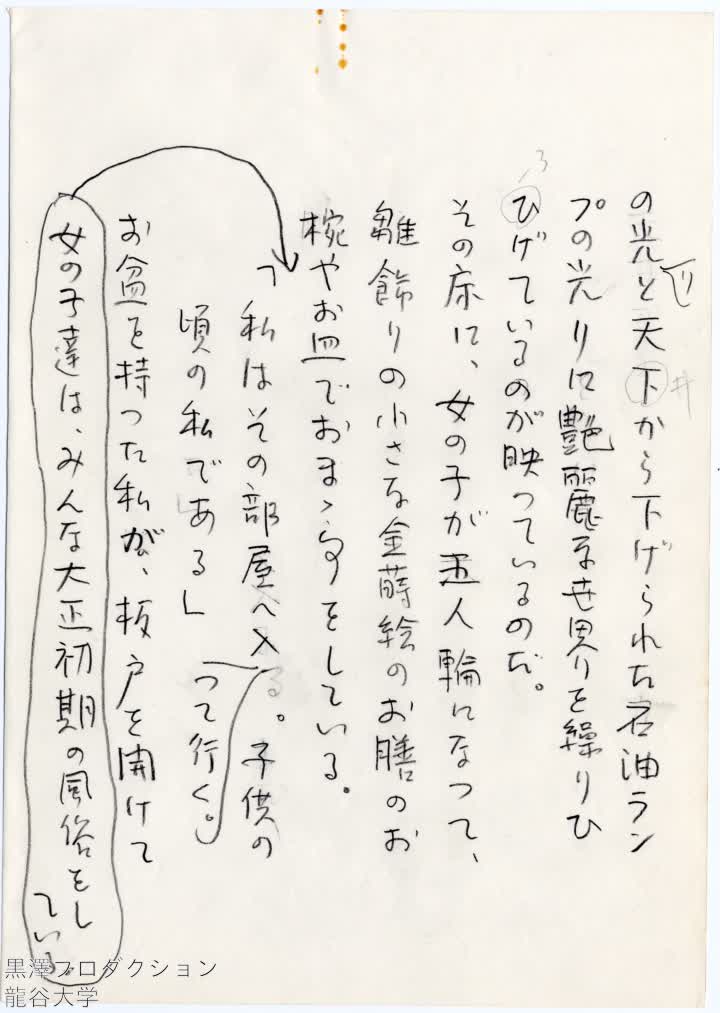 の光と天下から下げられた石油ラン
り
井
プの光りに艶麗な世界を繰りひ
ろ
ひげているのが映っているのだ。
その床に、女の子が五人輪になって、
雛飾りの小さな金蒔絵のお膳のお
椀やお皿でおまゝ事をしている。
「私はその部屋へ入る。子供の
って行く。
頃の私である」
お盆を持った私が、板戸を開けて
女の子達は、みんな大正初期の風俗をし
ている。
黒澤プロダクション
龍谷大学